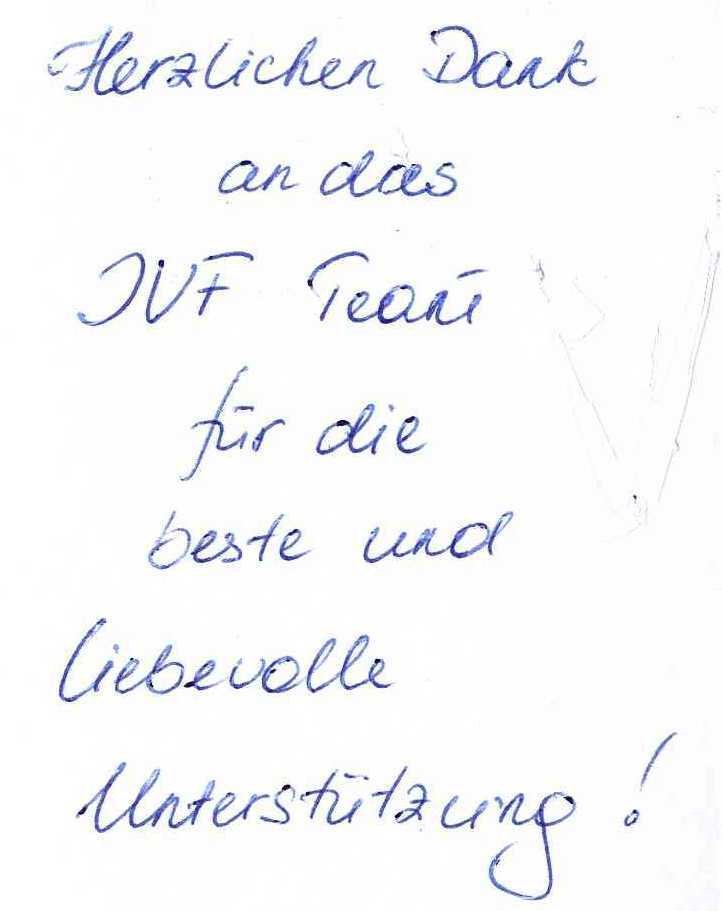 Herzlichen Dank
an das
IVF Team
für die
beste und
liebevolle
Unterstützung!